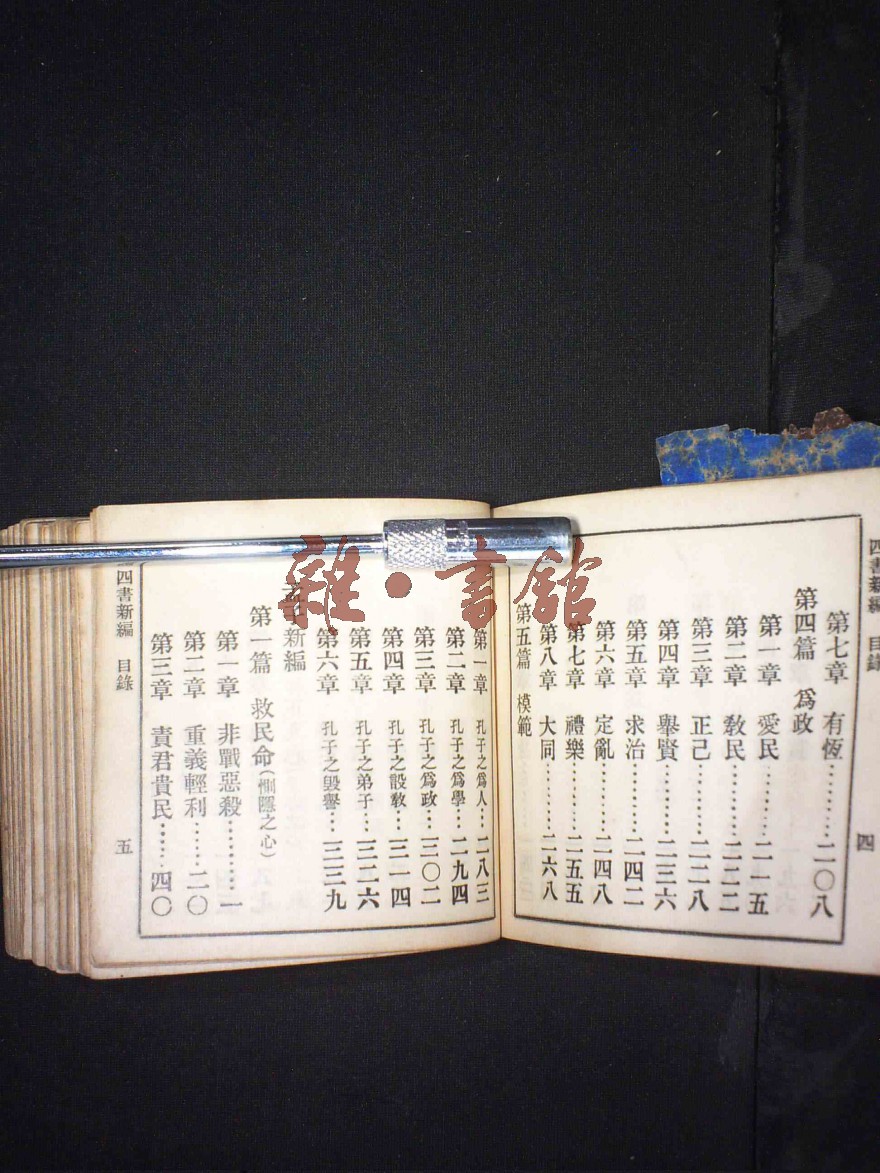 四書新編 目錄
四
第七章 有恆………二〇八
第四篇 爲政
第一章 愛民………二一五
第二章 敎民………二二二
第三章 正己………二二八
第四章 舉賢………二三六
第五章 求治………二四二
第六章 定亂………二四八
第七章 禮樂………二五五
第八章 大同………二六八
第五篇 模範
第一章 孔子之爲人…二八三
第二章 孔子之爲學…二九四
第三章 孔子之爲政…三〇二
第四章 孔子之設敎…三一四
第五章 孔子之弟子…三二六
第六章 孔子之毀譽…三三九
孟子新編
第一篇 救民命(惻隱之心)
第一章 非戰惡殺………一
第二章 重義輕利……二〇
第三章 責君貴民……四〇
四書新編 目錄
五
雜·書館